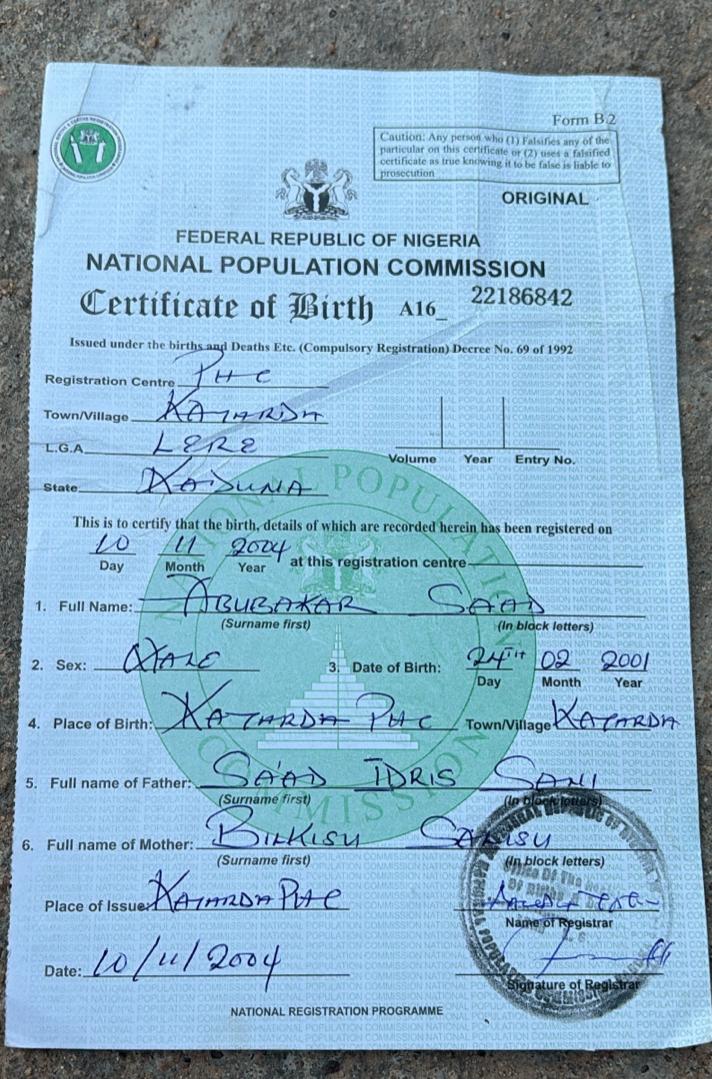 Form B.2
Caution: Any person who (1) Falsifies any of the
particular on this certificate or (2) uses a falsified
certificate as true knowing it to be false is liable to
prosecution
ORIGINAL
FEDERAL REPUBLIC OF NIGERIA
NATIONAL POPULATION COMMISSION
Certificate of Birth A16_ 22186842
Issued under the births and Deaths Etc. (Compulsory Registration) Decree No. 69 of 1992
Registration Centre PHC
Town/Village KATARDA
L.G.A. LERE
Volume Year Entry No.
State KADUNA
This is to certify that the birth, details of which are recorded herein has been registered on
10 11 2004 at this registration centre
Day Month Year
1. Full Name: ABUBAKAR SAAD
(Surname first) (In block letters)
2. Sex: MALE 3. Date of Birth: 24TH 02 2001
Day Month Year
4. Place of Birth: KATARDA PHC Town/Village KATARDA
5. Full name of Father: SA'AD IDRIS SANI
(Surname first) (In block letters)
6. Full name of Mother: BILKISU
(Surname first) (In block letters)
Place of Issue: KATARDA PHC
Name of Registrar
Date: 10/11/2004
Signature of Registrar
NATIONAL REGISTRATION PROGRAMME